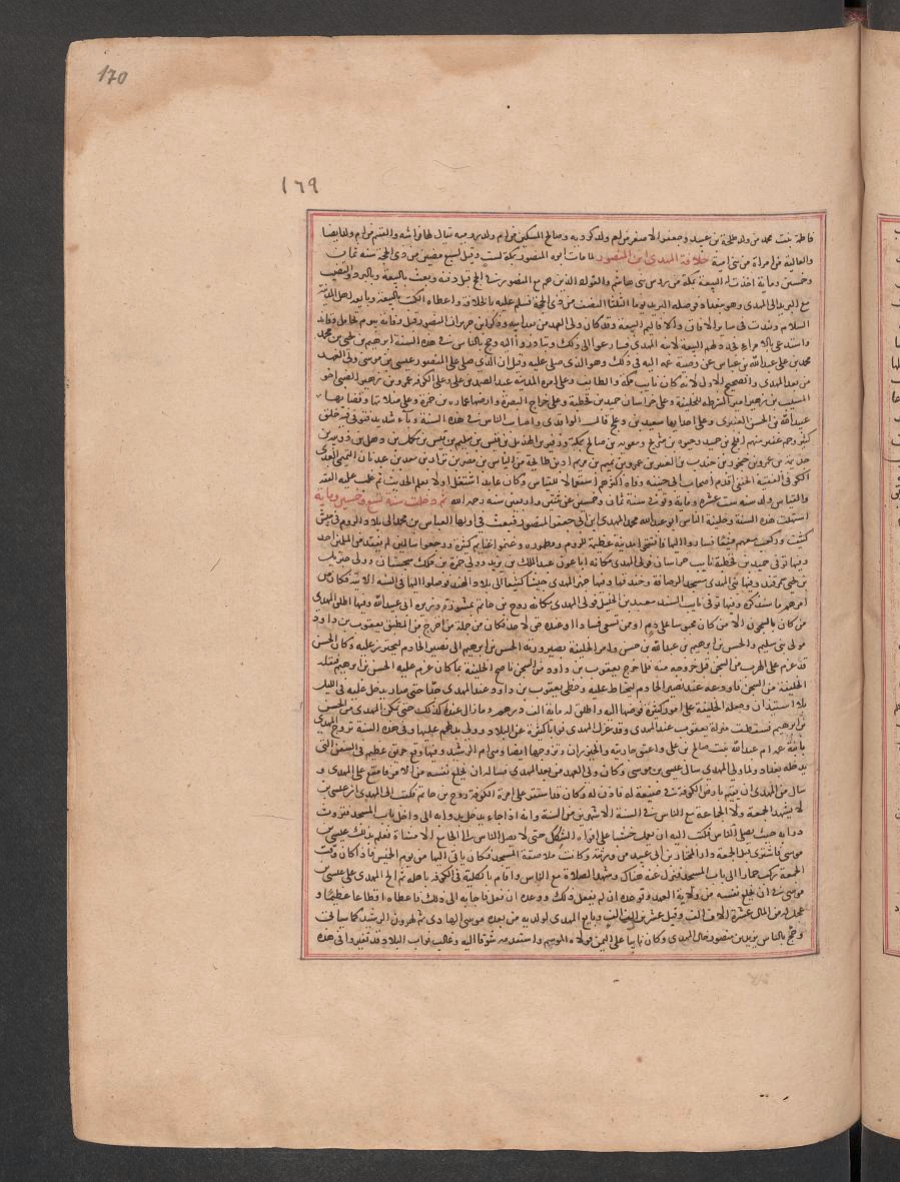 170
١٦٩
فاطمة بنت محمد من ولد طلحة بن عبيد وجعفر الاصغر من ام ولد كردية وصالح المسكين من ام ولد رومية يقال لها قراشه والقسم من ام ولد ايضا
والعالية من امراة من بني امية خلافة المهدى ابن المنصور لما مات ابوه المنصور بمكة لست وقيل لسبع مضين من ذي الحجة سنة ثمان
وخمسين ومایة اخذت له البيعة بمكة من روس بني هاشم والقواد الذين هم مع المنصور في الحج قبل دفنه وبعث بالبيعة وبالبرد والقضيب
مع البريد الى المهدى وهو ببغداد فوصله البريد يوم الثلثا النصف من ذي الحجة فسلم عليه بالخلافة واعطاه الكتب بالبيعة وبايعه اهل مدينة
السلام ونفذت في ساير الافاق والاقاليم البيعة وقد كان ولى العهد من بعد ابيه وذكر ابن جرير ان المنصور قبل وفاته بيوم تحامل وتساند
واستدعى بالامراء فجدد لهم البيعة لابنه المهدى فسارعوا الى ذلك وتبادروا اليه وحج بالناس في هذه السنة ابرهيم بن يحيى بن محمد
محمد بن على بن عبدالله بن عباس عن وصية عمه اليه في ذلك وهو الذي صلى عليه وقيل ان الذي صلى على المنصور عيسى بن موسى ولى العهد
من بعد المهدى والصحيح الاول لانه كان نايب مكة والطايف وعلى امرة المدينة عبد الصمد بن على وعلى الكوفة عمرو بن زهير الضبي اخو
المسيب بن زهير امير الشرطة للخليفة وعلى خراسان حميد بن قحطبة وعلى خراج البصرة وارضها عمارة بن حمزة وعلى صلاتها وقضايها
عبيدالله بن الحسن العنبري وعلى احداثها سعيد بن دعلج قال الواقدي واصاب الناس في هذه السنة وباء شديد فتوفى فيه خلق
كثير وجم غفير منهم افلح بن حميد وحيوة بن شريح ومعوية بن صالح بمكة وزفر بن الهذيل بن قيس بن سليم بن قيس بن مكمل بن ذهل بن ذويب بن
جذيمة بن عمرو بن حنجود بن جندب بن العنبر بن عمرو بن تميم بن مر بن اد بن طابخة بن الياس بن مضر بن نزار بن معد بن عدنان التميمي العنبري
الكوفي الفقيه الحنفي اقدم اصحاب ابي حنيفة وفاة واكثرهم استعمالا للقياس وكان عابدا اشتغل اولا بعلم الحديث ثم غلب عليه الفقه
والقياس ولد سنة ست عشره ومایة وتوفى سنة ثمان وخمسين عن ثنتين واربعين سنة رحمه الله ثم دخلت سنة تسع وخمسين ومایة
استهلت هذه السنة وخليفة الناس ابو عبدالله محمد المهدي بن ابي جعفر المنصور فبعث في اولها العباس بن محمد الى بلاد الروم في جيش
كثيف وركب معهم مشيعا فساروا اليها فافتتحوا مدينة عظيمة للروم ومطمورة وغنموا غنايم كثيرة ورجعوا سالمين لم يفقد من المسلمين احد
وفيها توفى حميد بن قحطبة نايب خراسان فولى المهدي مكانه ابا عون عبد الملك بن يزيد وولى حمزة بن ملك سجستان وولى جبريل
بن يحيى سمرقند وفيها بنى المهدى مسجد الرصافة وخندقها وفيها جهز المهدى جيشا كثيفا الى بلاد الهند فوصلوا اليها في السنة الاتية فكان من
امرهم ما سنذكره وفيها توفى نايب السند معبد بن الخليل فولى المهدى مكانه روح بن حاتم بمشورة وزيره ابي عبيدالله وفيها اطلق المهدى
من كان بالسجون الا من كان محبوسا على دم او من سعى فسادا او عنده حق لاحد فكان من جملة من اخرج من المطبق يعقوب بن داود
مولى بني سليم والحسن بن ابرهيم بن عبدالله بن حسن وامر الخليفة بصيرورة الحسن بن ابرهيم الى نصير الخادم ليحترز عليه وكان الحسن
قد عزم على الهرب من السجن قبل خروجه منه فلما خرج يعقوب بن داود من السجن ناصح الخليفة بما كان عزم عليه الحسن بن ابرهيم فنقله
الخليفة من السجن فاودعه عند نصير الخادم ليحتاط عليه وحظى يعقوب بن داود عند المهدى جدا حتى صار يدخل عليه في الليل
بلا استيذان وجعله الخليفة على امور كثيرة فوضها اليه واطلق له ماية الف درهم وما زال عنده كذلك حتى تمكن المهدى من الحسن
بن ابرهيم فسقطت منزلة يعقوب عند المهدى وقد عزل المهدى نوابا كثيرة عن البلاد وولى بدلهم عليها وفي هذه السنة تزوج المهدى
بابنة عمه ام عبدالله بنت صالح بن على واعتق جاريته الخيزران وتزوجها ايضا وهي ام الرشيد وفيها وقع حريق عظيم في السفن التي
بدجلة بغداد ولما ولى المهدى سال عيسى بن موسى وكان ولى العهد من بعد المهدى فساله ان يخلع نفسه من الامر فامتنع على المهدى و
سال من المهدى ان يقيم بارض الكوفة في ضيعة له فاذن له وكان قد استقر على امرة الكوفة روح بن حاتم فكتب الى المهدى ان عيسى بن
لا يشهد الجمعة ولا الجماعة مع الناس في السنة الا شهرين من السنة وانه اذا جاء يدخل بدوابه الى داخل باب المسجد فتروث
دوابه حيث يصلى الناس فكتب اليه ان يعمل خشبا على افواه السكك حتى لا يصل الناس الى الجامع الا مشاة فعلم بذلك عيسى بن
موسى فاشترى قبل الجمعة دار المختار بن ابي عبيد من ورثته وكانت ملاصقة المسجد فكان ياتى اليها من يوم الخميس فاذا كان يوم
الجمعة ركب حمارا الى باب المسجد فنزل عنه هناك وشهد الصلاة مع الناس واقام بالكلية في الكوفة باهله ثم الح المهدى على عيسى بن
موسى في ان يخلع نفسه من ولاية العهد وتوعده ان لم يفعل ذلك ووعده ان فعل فاجابه الى ذلك فاعطاه اقطاعا عظيمًا و
عجل له من المال عشرة الاف الف وقيل عشرين الف الف وبايع المهدى لولديه من بعده موسى الهادى ثم لهرون الرشيد كما سياتى
وحج بالناس يزيد بن منصور خال المهدى وكان نايبا على اليمن فولاه الموسم واستقدمه شوقا اليه وغالب نواب البلاد قد تغيروا في هذه